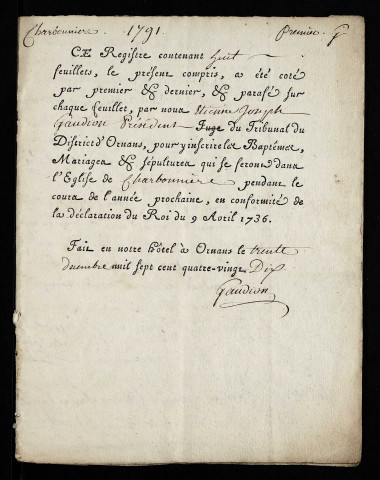 Charbonniere. 1791. Premier. G
CE Registre contenant huit
feuillets, le présent compris, a été coté
par premier & dernier, & parafé sur
chaque feuillet, par nous Etienne Joseph
Gaudion Président Juge du Tribunal du
District d'Ornans, pour y inscrire les Baptêmes,
Mariages & sépultures qui se feront dans
l'Eglise de Charbonniere pendant le
cours de l'année prochaine, en conformité de
la déclaration du Roi du 9 Avril 1736.
Fait en notre hôtel à Ornans le trente
decembre mil sept cent quatre-vingt Dix
Gaudion